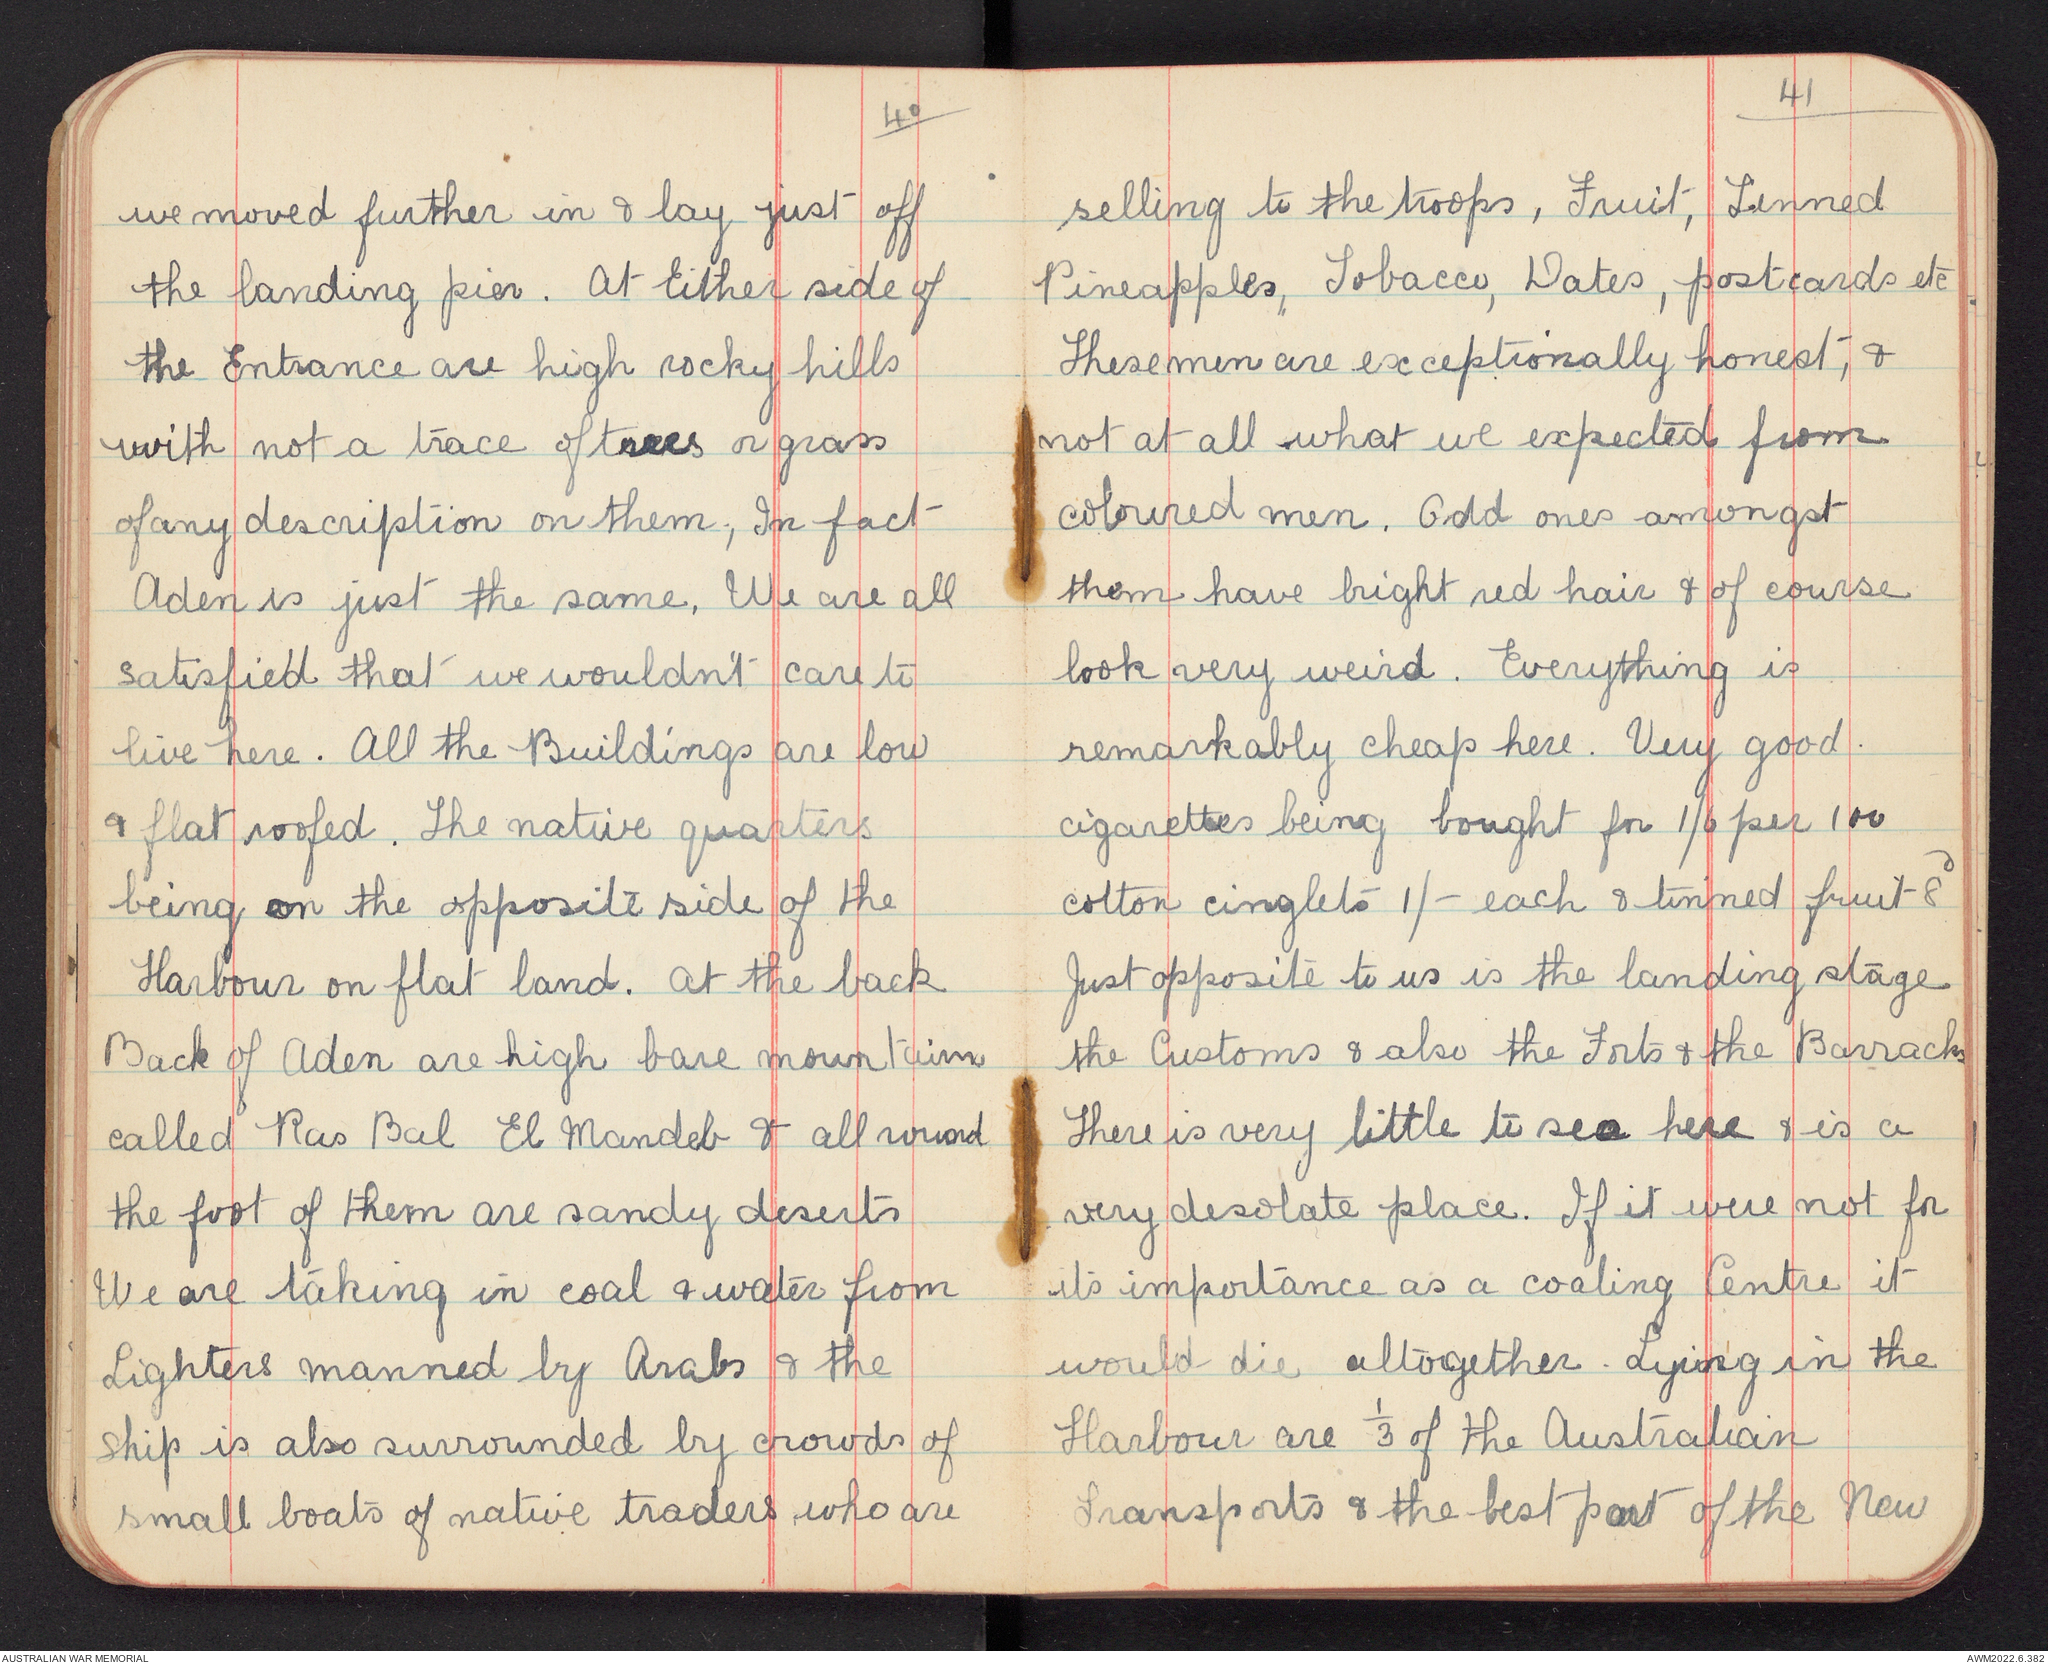 40
we moved further in & lay just off
the landing pier. At Either side of
the Entrance are high rocky hills
with not a trace of trees or grass
of any description on them, In fact
Aden is just the same. We are all
satisfied that we wouldn't care to
live here. All the Buildings are low
& flat roofed. The native quarters
being on the opposite side of the
Harbour on flat land. At the back
Back of Aden are high bare mountains
called Ras Bal El Mandeb & all round
the foot of them are sandy deserts
We are taking in coal & water from
Lighters manned by Arabs & the
ship is also surrounded by crowds of
small boats of native traders who are
41
selling to the troops, Fruit, Tinned
Pineapples, Tobacco, Dates, postcards etc
These men are exceptionally honest, &
not at all what we expected from
coloured men. Odd ones amongst
them have bright red hair & of course
look very weird. Everything is
remarkably cheap here. Very good
cigarettes being bought for 1/6 per 100
cotton cinglets 1/- each & tinned fruit 8d
Just opposite to us is the landing stage
the Customs & also the Forts & the Barracks
There is very little to see here & is a
very desolate place. If it were not for
its importance as a coaling Centre it
would die altogether. Lying in the
Harbour are 1/3 of the Australian
Transports & the best part of the New
AUSTRALIAN WAR MEMORIAL
AWM2022.6.382